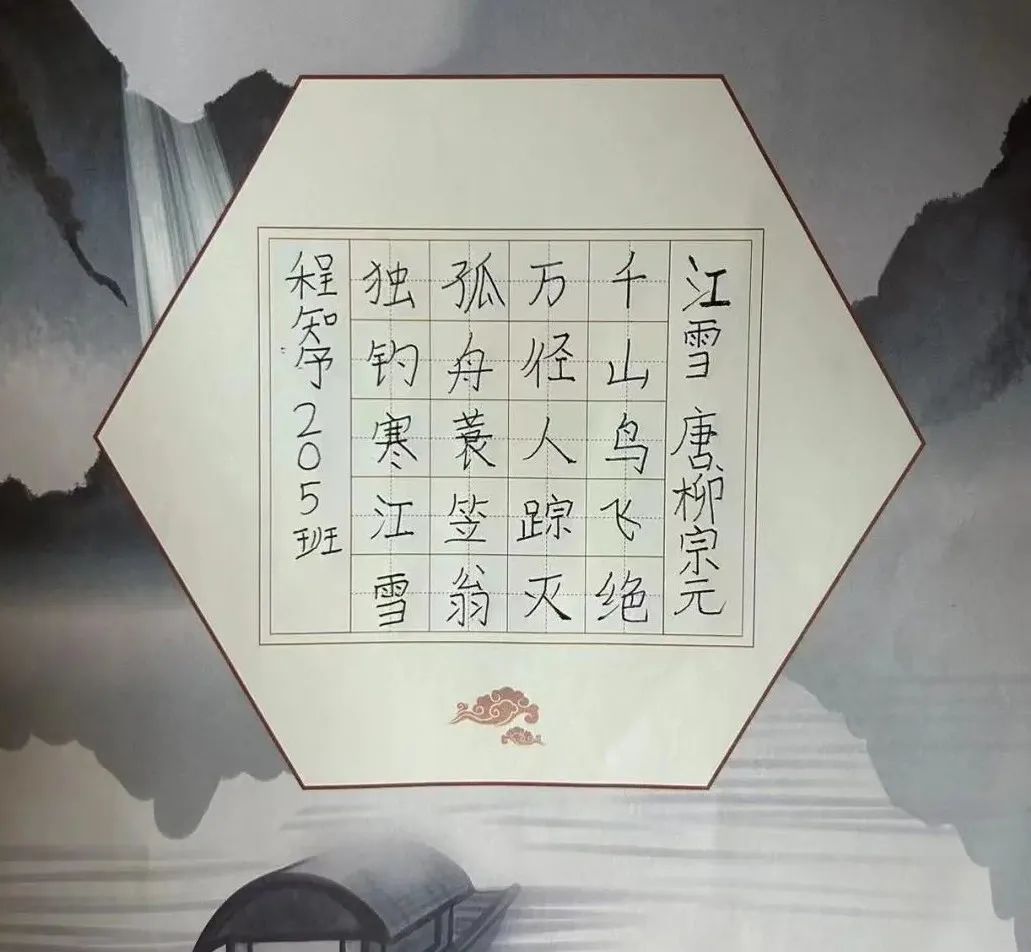 江雪 唐柳宗元
千山鸟飞绝
万径人踪灭
孤舟蓑笠翁
独钓寒江雪
程智予205班